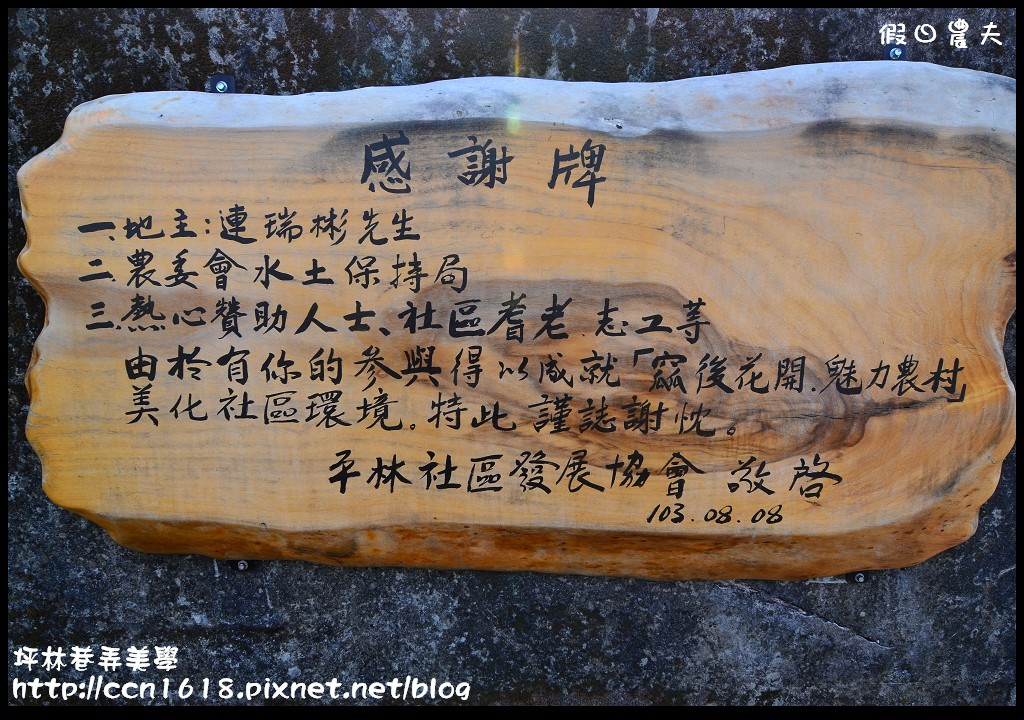 假日農夫
感謝牌
一、地主：連瑞彬先生
二、農委會水土保持局
三、熱心贊助人士、社區耆老、志工等
由於有你的參與得以成就「窳後花開、魅力農村」
美化社區環境。特此 謹誌謝忱。
平林社區發展協會 敬啓
103.08.08
坪林巷弄美學
http://ccn1618.pixnet.net/blog